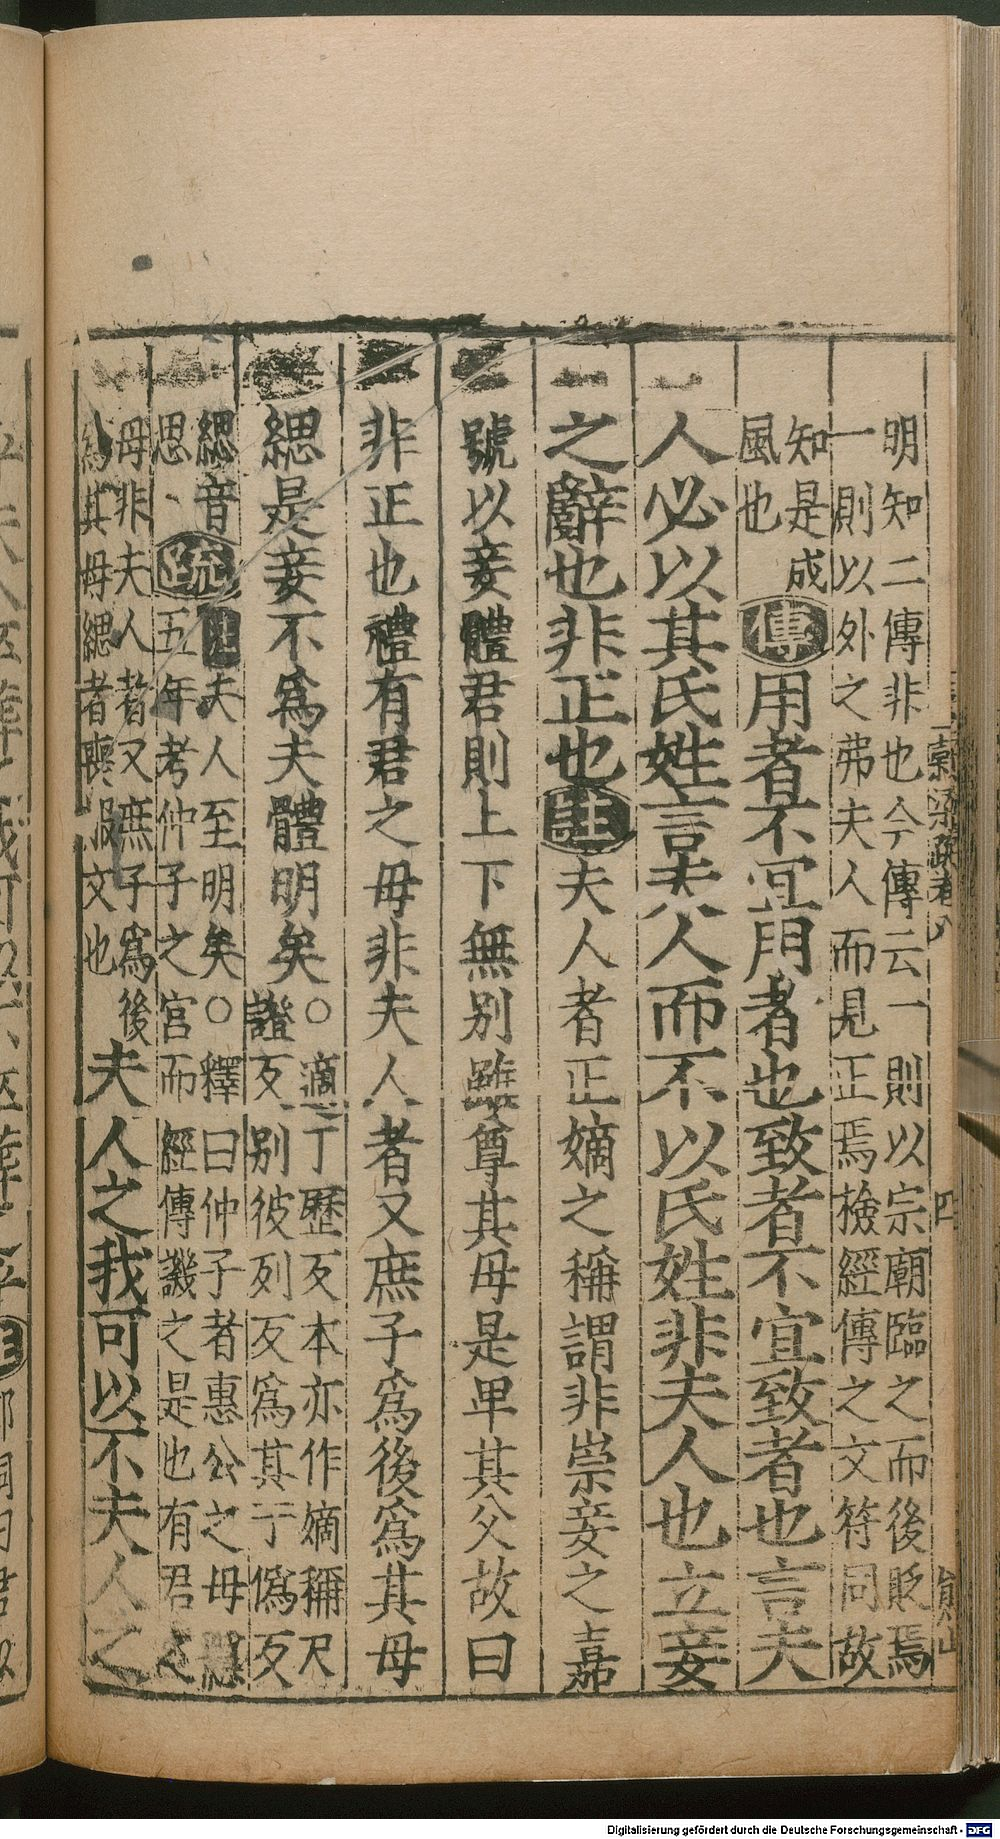 明知二傳非也今傳云一則以宗廟臨之而後貶焉
一則以外之弗夫人而見正焉撿經傳之文符同故
知是成
風也
傳用者不宜用者也致者不宜致者也言夫
人必以其氏姓言夫人而不以氏姓非夫人也立妾
之辭也非正也註夫人者正嫡之稱謂非崇妾之嘉
號以妾體君則上下無別雖尊其母是卑其父故曰
非正也禮有君之母非夫人者又庶子爲後爲其母
緦是妾不爲夫體明矣○適丁歷反本亦作嫡稱尺
證反別彼列反爲其于僞反
緦音
思、疏夫人至明矣○釋曰仲子者惠公之母
五年考仲子之宮而經傳譏之是也有君之
母非夫人者又庶子爲後
爲其母緦者喪服文也
夫人之我可以不夫人之
穀梁疏卷八
四
Digitalisierung gefördert durch die Deutsche Forschungsgemeinschaft - DFG